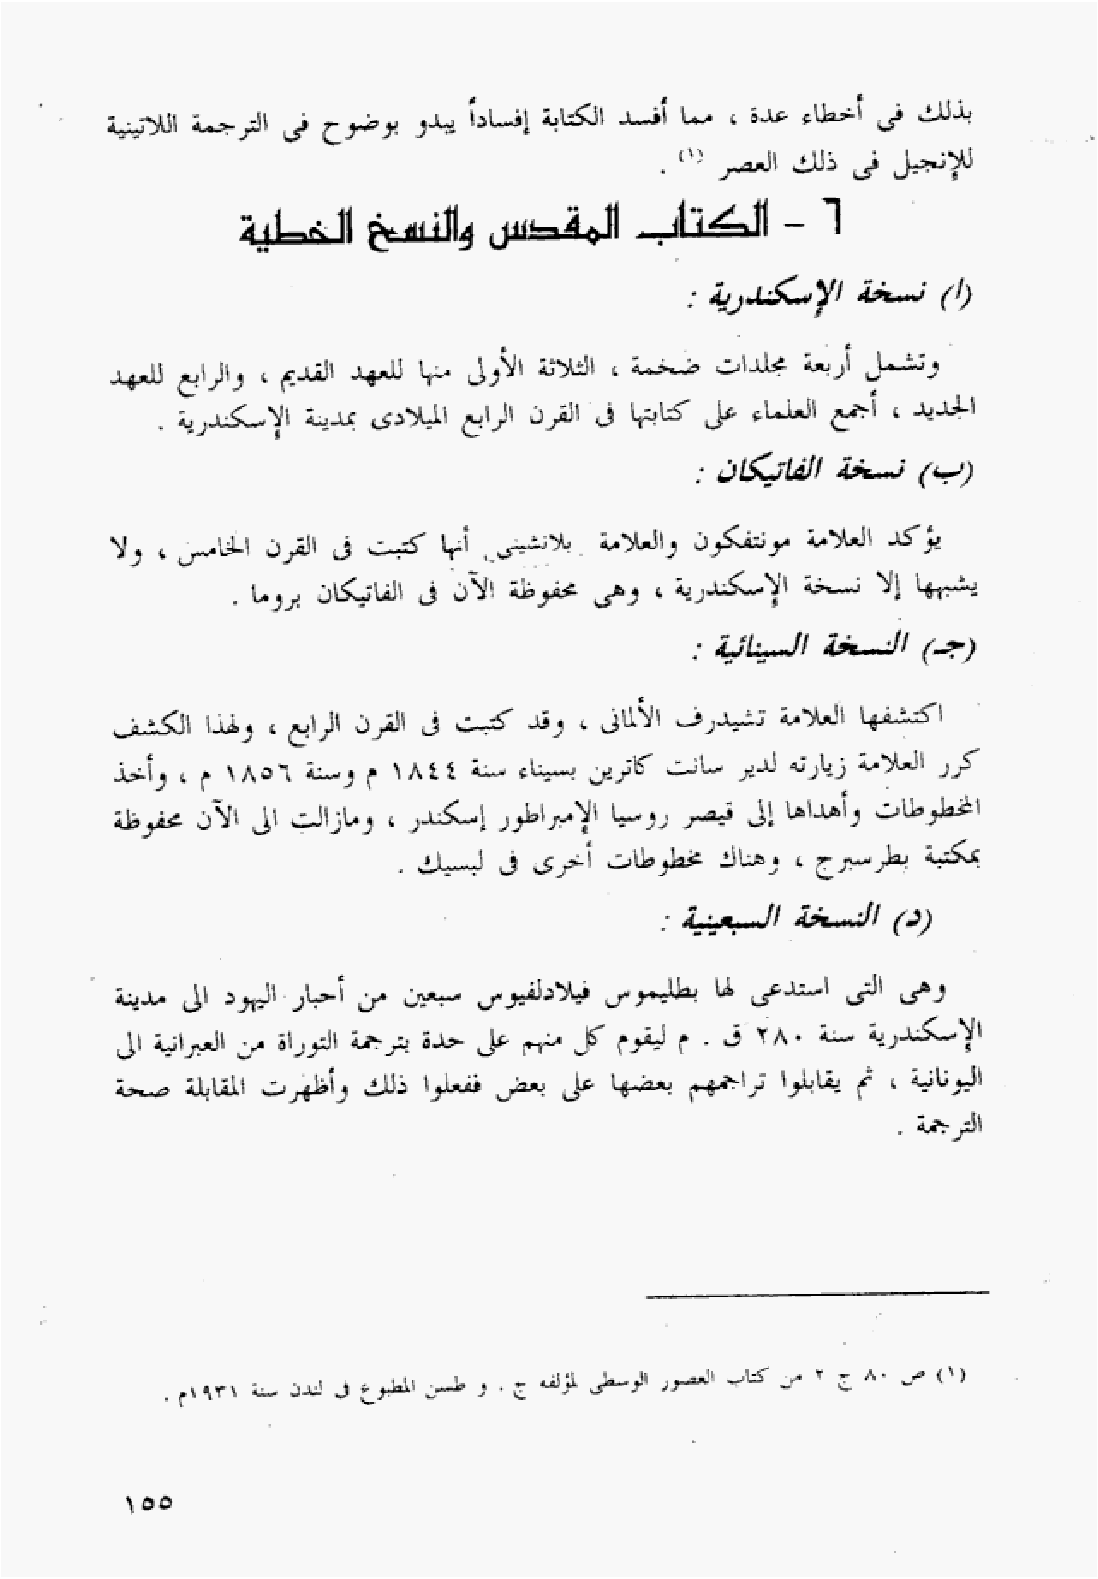 بذلك فى أخطاء عدة ، مما أفسد الكتابة إفساداً يبدو بوضوح فى الترجمة اللاتينية
للإنجيل فى ذلك العصر (١) .
٦ - الكتاب المقدس والنسخ الخطية
(ا) نسخة الإسكندرية :
وتشمل أربعة مجلدات ضخمة ، الثلاثة الأولى منها للعهد القديم ، والرابع للعهد
الجديد ، أجمع العلماء على كتابتها فى القرن الرابع الميلادى بمدينة الإسكندرية .
(ب) نسخة الفاتيكان :
يؤكد العلامة مونتفكون والعلامة بلانشينى أنها كتبت فى القرن الخامس ، ولا
يشبهها إلا نسخة الإسكندرية ، وهى محفوظة الآن فى الفاتيكان بروما .
(جـ) النسخة السينائية :
اكتشفها العلامة تشيدرف الألمانى ، وقد كتبت فى القرن الرابع ، ولهذا الكشف
كرر العلامة زيارته لدير سانت كاترين بسيناء سنة ١٨٤٤ م وسنة ١٨٥٦ م ، وأخذ
المخطوطات وأهداها إلى قيصر روسيا الإمبراطور إسكندر ، ومازالت الى الآن محفوظة
بمكتبة بطرسبرج ، وهناك مخطوطات أخرى فى لبسيك .
(د) النسخة السبعينية :
وهى التى استدعى لها بطليموس فيلادلفيوس سبعين من أحبار اليهود الى مدينة
الإسكندرية سنة ٢٨٠ ق . م ليقوم كل منهم على حدة بترجمة التوراة من العبرانية الى
اليونانية ، ثم يقابلوا تراجمهم بعضها على بعض ففعلوا ذلك وأظهرت المقابلة صحة
الترجمة .
(١) ص ٨٠ ج ٢ من كتاب العصور الوسطى لمؤلفه ج . و طسن المطبوع فى لندن سنة ١٩٣١م .
١٥٥